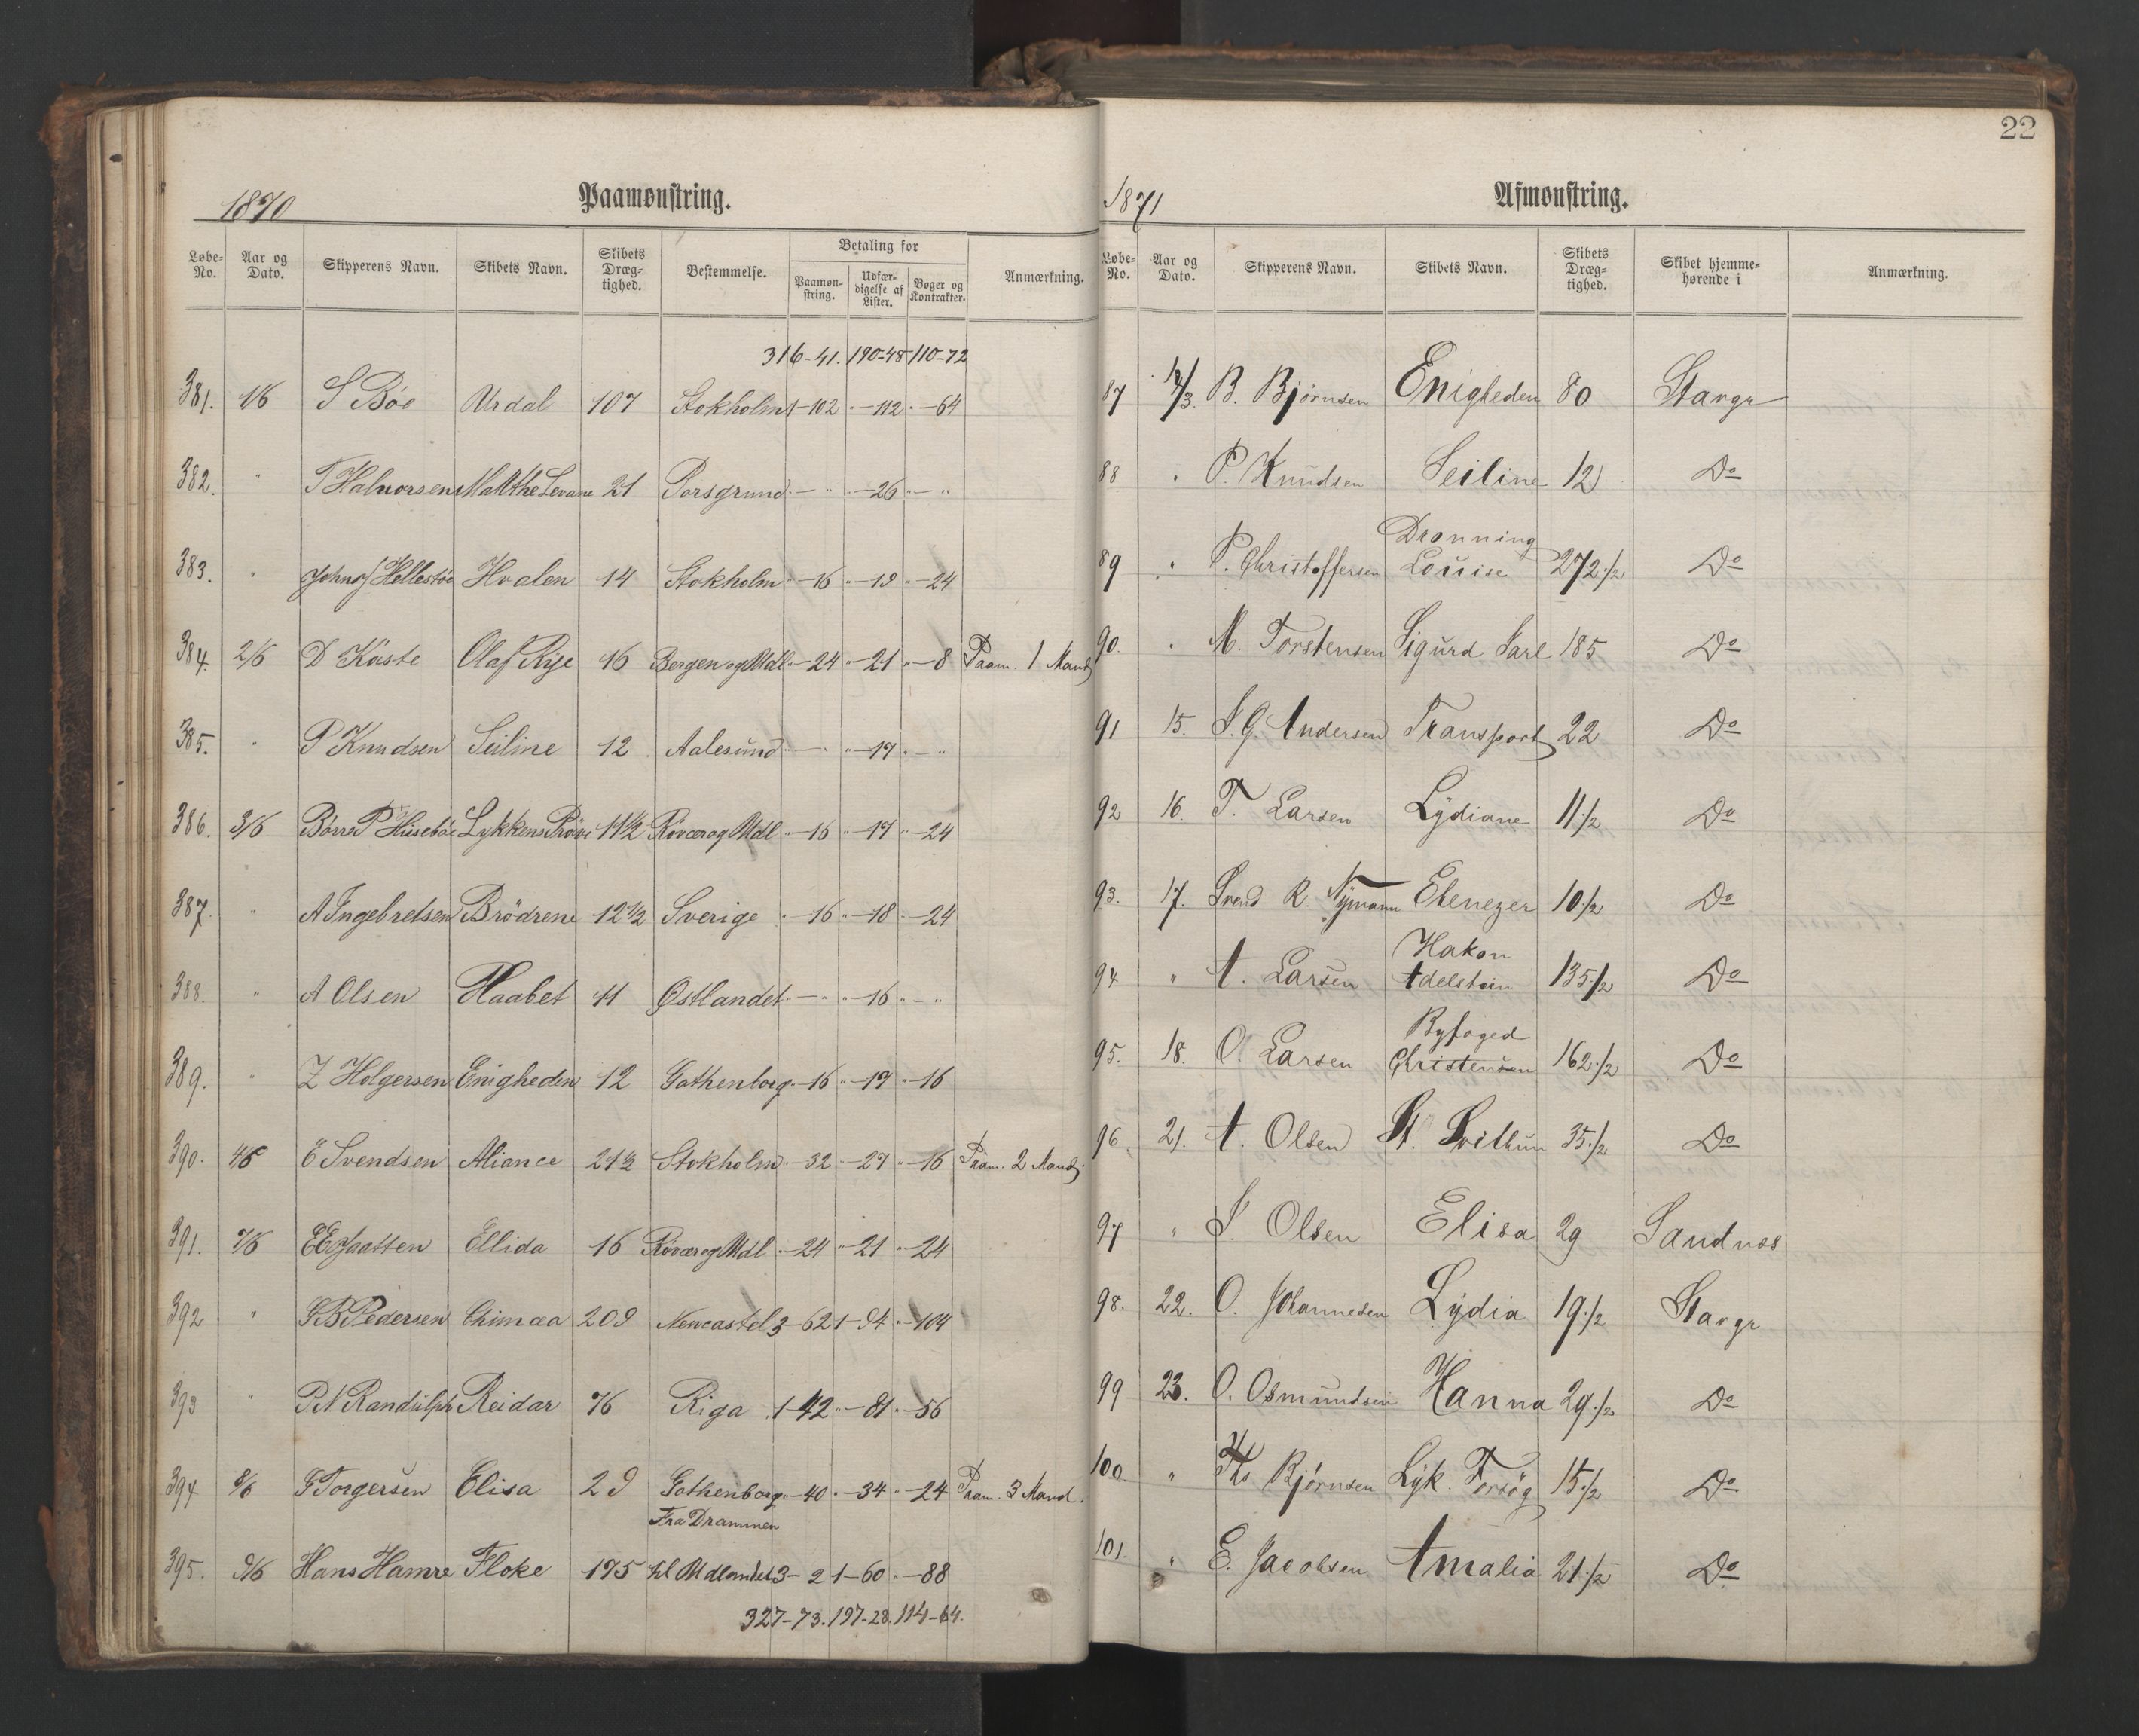 1870 Paamønstring.
Løbe-No. Aar og Dato. Skipperens Navn. Skibets Navn. Skibets Dræg-tighed. Bestemmelse. Betaling for Paamøn-string. Udfær-digelse af Lister. Bøger og Kontrakter. Anmærkning.
316-41. 190-48 110-72
381. 1/6 S Böe Urdal 107 Stokholm 1-102 "-112 "-64
382. " T Halvorsen Malthe 21 Porsgrund "-" "-26 "-"
383. " Johns J Hellestöe Hvalen 14 Stokholm "-16 "-19 "-24
384. 2/6 D Käste Olaf Rye 16 Bergen og Mdl "-24 "-21 "-8 Paam. 1 Mand
385. " P Knudsen Seiline 12 Aalesund "-" "-17 "-"
386. 3/6 Börre P Huseböe Lykkens Pröve 11 1/2 Röver og Mdl "-16 "-17 "-24
387. " A Ingebretsen Brödrene 12 1/2 Sverige "-16 "-18 "-24
388. " A Olsen Haabet 11 Østlandet "-" "-16 "-"
389. " Z Holgersen Enigheden 12 Gothenborg "-16 "-17 "-16
390. 4/6 E Svendsen Aliance 21 1/2 Stokholm "-32 "-27 "-16 Paam. 2 Mand
391. 7/6 Ellida 16 Rövær og Mdl "-24 "-21 "-24
392 " Pedersen Chimaa 209 Newcastel 3-62 1-94 "-104
393 " P N Randulph Reidar 76 Riga 1-42 "-81 "-56
394 8/6 G Torgersen Elisa 29 Gothenborg "-40 "-34 "-24 Paam. 3 Mand.
Fra Drammen
395. 9/6 Hans Hamre Floke 175 til Udlandet 3-2 1-60 "-88
327-73. 197-28. 114-64.
22
1871 Afmønstring.
Løbe-No. Aar og Dato. Skipperens Navn. Skibets Navn. Skibets Dræg-tighed. Skibet hjemme-hørende i Anmærkning.
87 14/3. B. Bjørnsen Enigheden 80 Stavgr
88 " P. Knudsen Seiline 12 Do
89 " P. Christoffersen Dronning Louise 272 1/2 Do
90. " M. Torstensen Sigurd Jarl 185 Do
91 15. S. G. Andersen Transport 22 Do
92 16. T. Larsen Lydiane 11 1/2 Do
93. 17. Svend R. Nymann Ebenezer 10 1/2 Do
94 " A. Larsen Hakon Adelstein 135 1/2 Do
95. 18. O. Larsen Byfoged Christensen 162 1/2 Do
96. 21. A. Olsen St. Svithun 35 1/2 Do
97 " S. Olsen Elisa 29 Sandnes
98. 22. O. Johannesen Lydia 19 1/2 Stavgr
99 23. O. Osmundsen Hanna 29 1/2 Do
100. " Ths Bjørnsen Lyk. Forsög 15 1/2 Do
101. " E. Jacobsen Amalia 21 1/2 Do